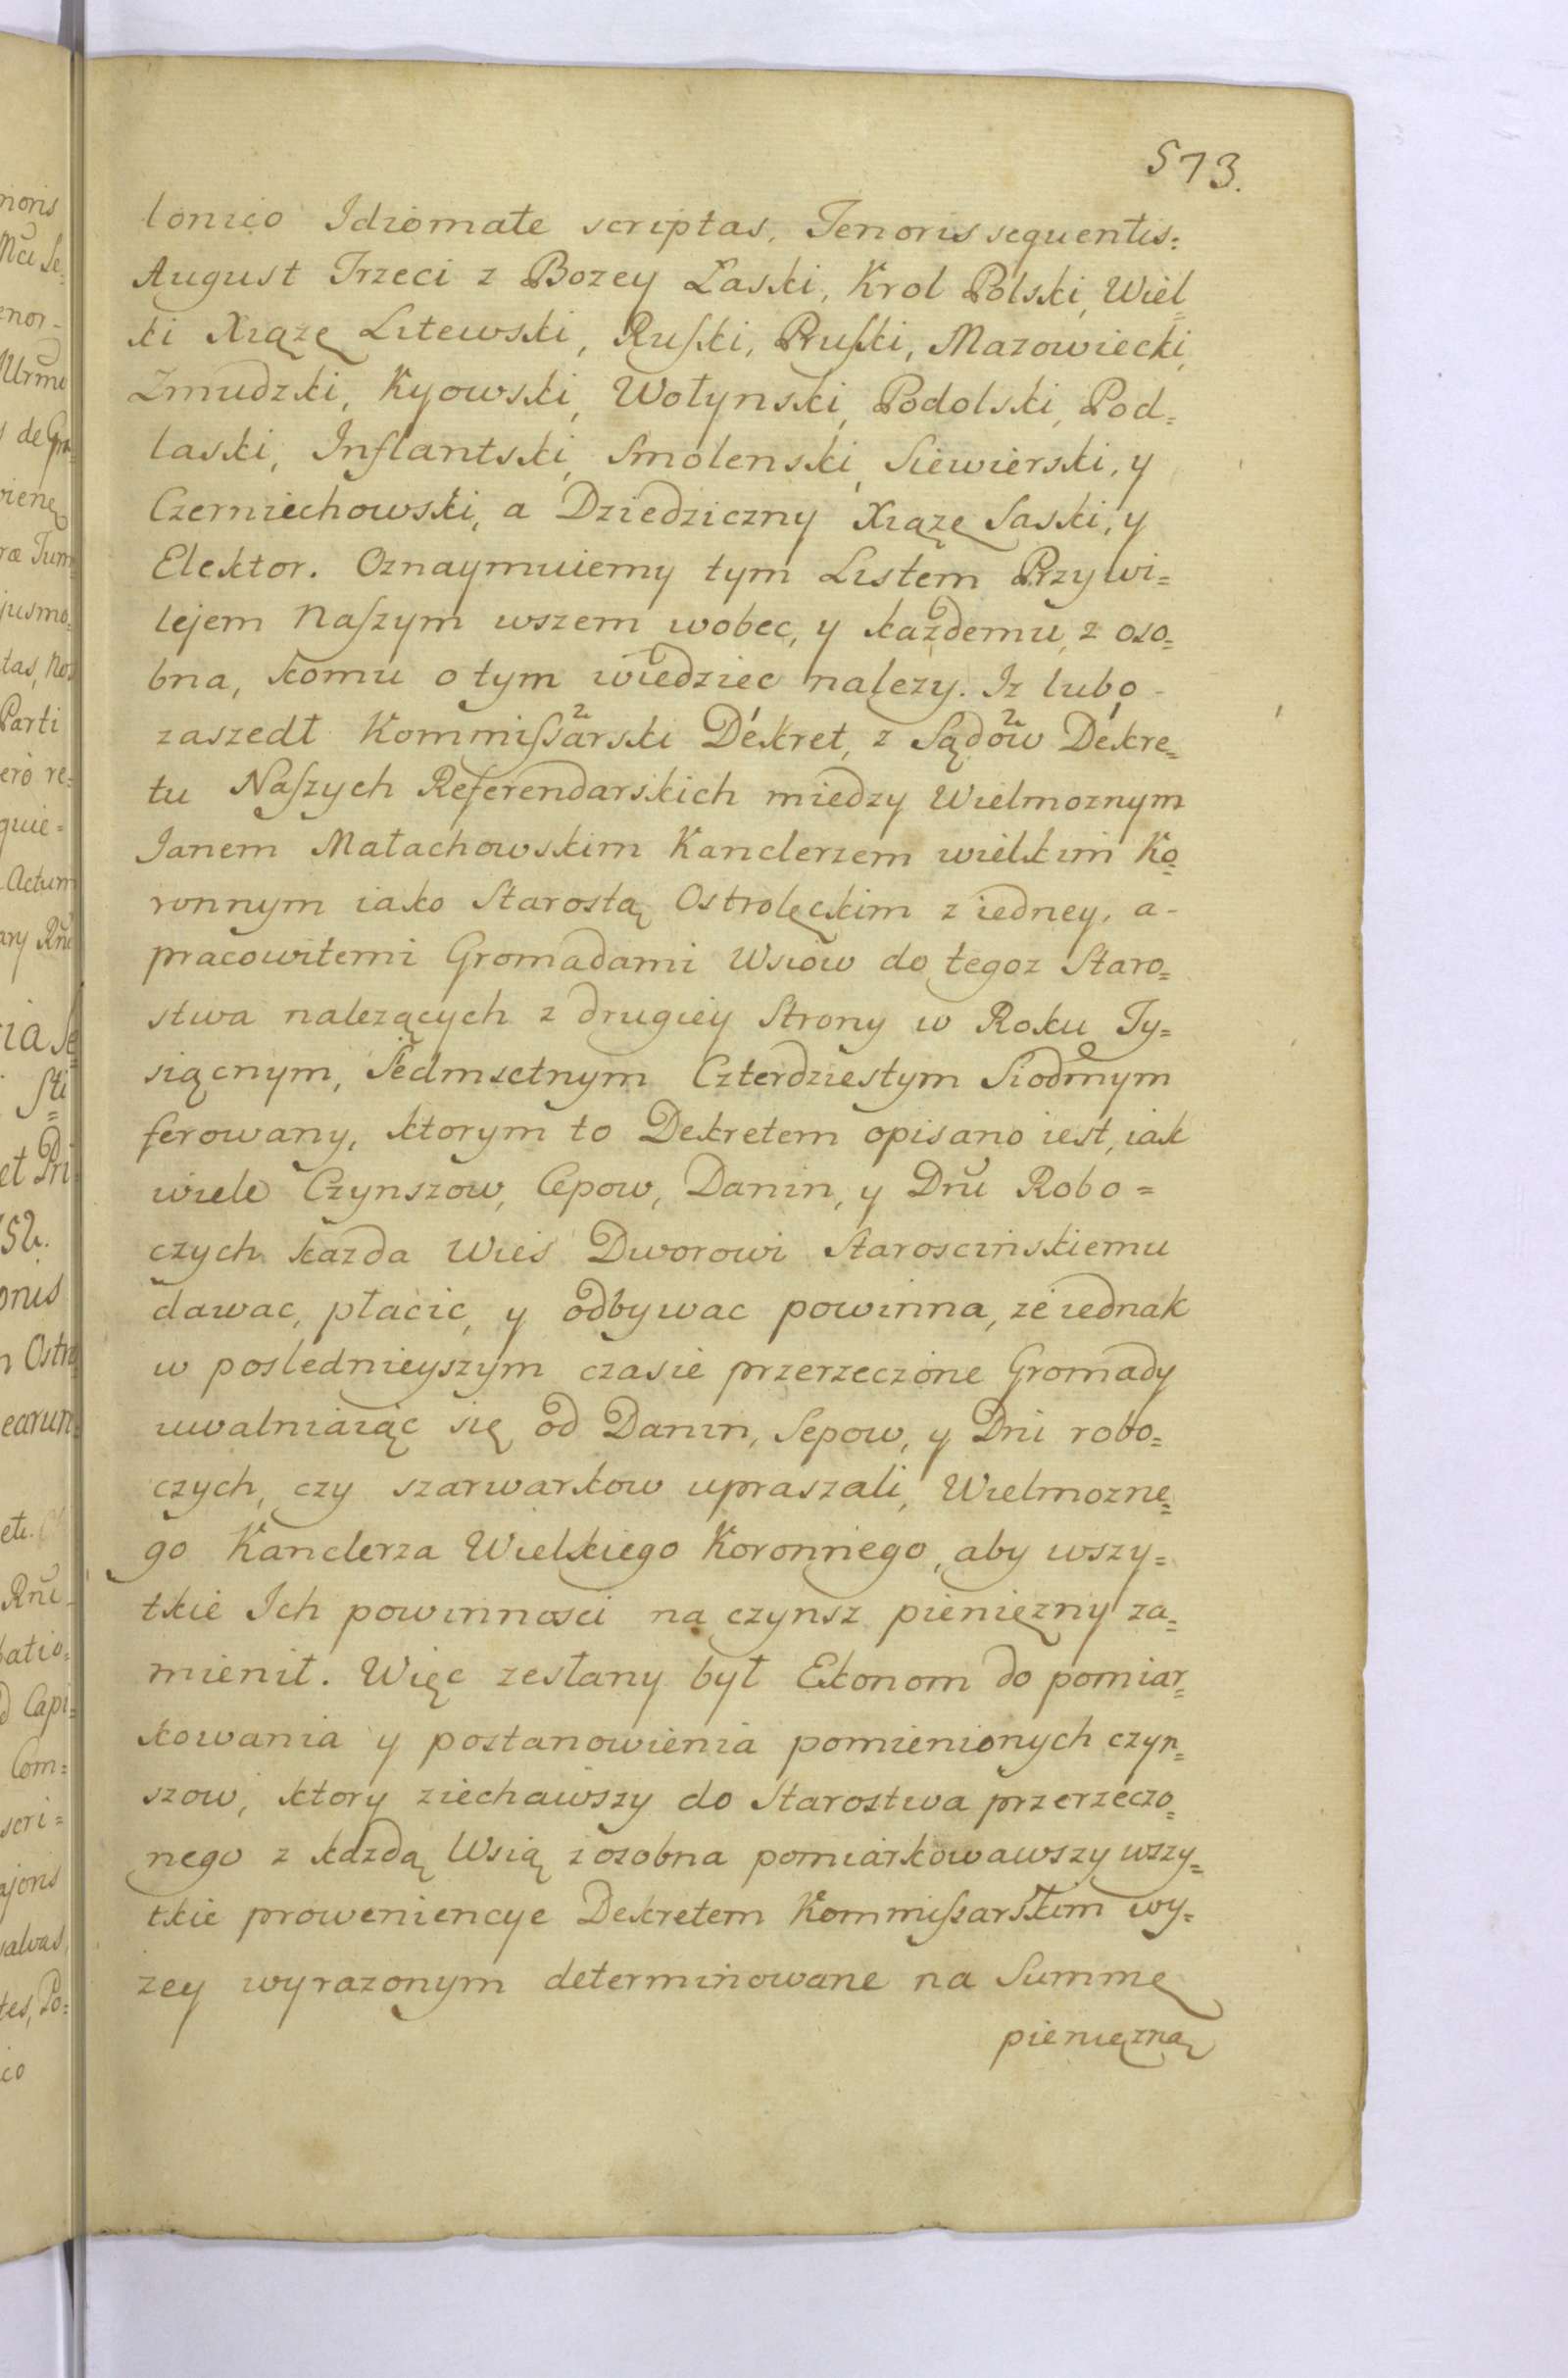 573.
lonico Idiomate scriptas, Tenoris sequentis:
August Trzeci z Bozey Łaski, Krol Polski, Wiel=
ki Xiążę Litewski, Ruſki, Pruſki, Mazowiecki,
Zmudzki, Kyowski, Wołynski, Podolski, Pod=
laski, Inflantski, Smolenski, Siewierski, y
Czerniechowski, a Dziedziczny Xiążę Saski, y
Elektor. Oznaymuiemy tym Listem Przywi=
lejem Naſzym wszem wobec, y każdemu, z oso=
bna, komu o tym wiedziec nalezy. Iz lubo -
zaszedł Kommiſsarski 2 Dekret, 1 z Sądow 2 Dekre= 1
tu Naſzych Referendarskich miedzy Wielmoznym
Janem Małachowskim Kanclerzem wielkim Ko=
ronnym iako Starostą Ostrolęckim z iedney, a -
pracowitemi Gromadami Wsiow do tegoz Staro=
stwa nalezących z drugiey Strony w Roku Ty=
siącnym, Sedmsetnym Czterdziestym Siodmym
ferowany, ktorym to Dekretem opisano iest, iak
wiele Czynszow, Cepow, Danin, y Dnŭ Robo=
czych kazda Wieś Dworowi Staroscińskiemu
dawac, płacic, y odbywac powinna, ze iednak
w poslednieyszym czasie przerzeczone Gromady
uwalniaiąc się od Danin, Sepow, y Dni robo=
czych, czy szarwarkow upraszali, Wielmozne=
go Kanclerza Wielkiego Koronnego, aby wszy=
tkie Ich powinnosci na czynsz pieniężny za=
mienił. Więc zesłany był Ekonom do pomiar=
kowania y postanowienia pomienionych czyn=
szow, ktory ziechawszy do Starostwa przerzeczo=
nego z kazdą Wsią z osobna pomiarkowawszy wszy=
tkie proweniencye Dekretem Kommiſsarskim wy=
zey wyrazonym determinowane na Summę
pieniężną